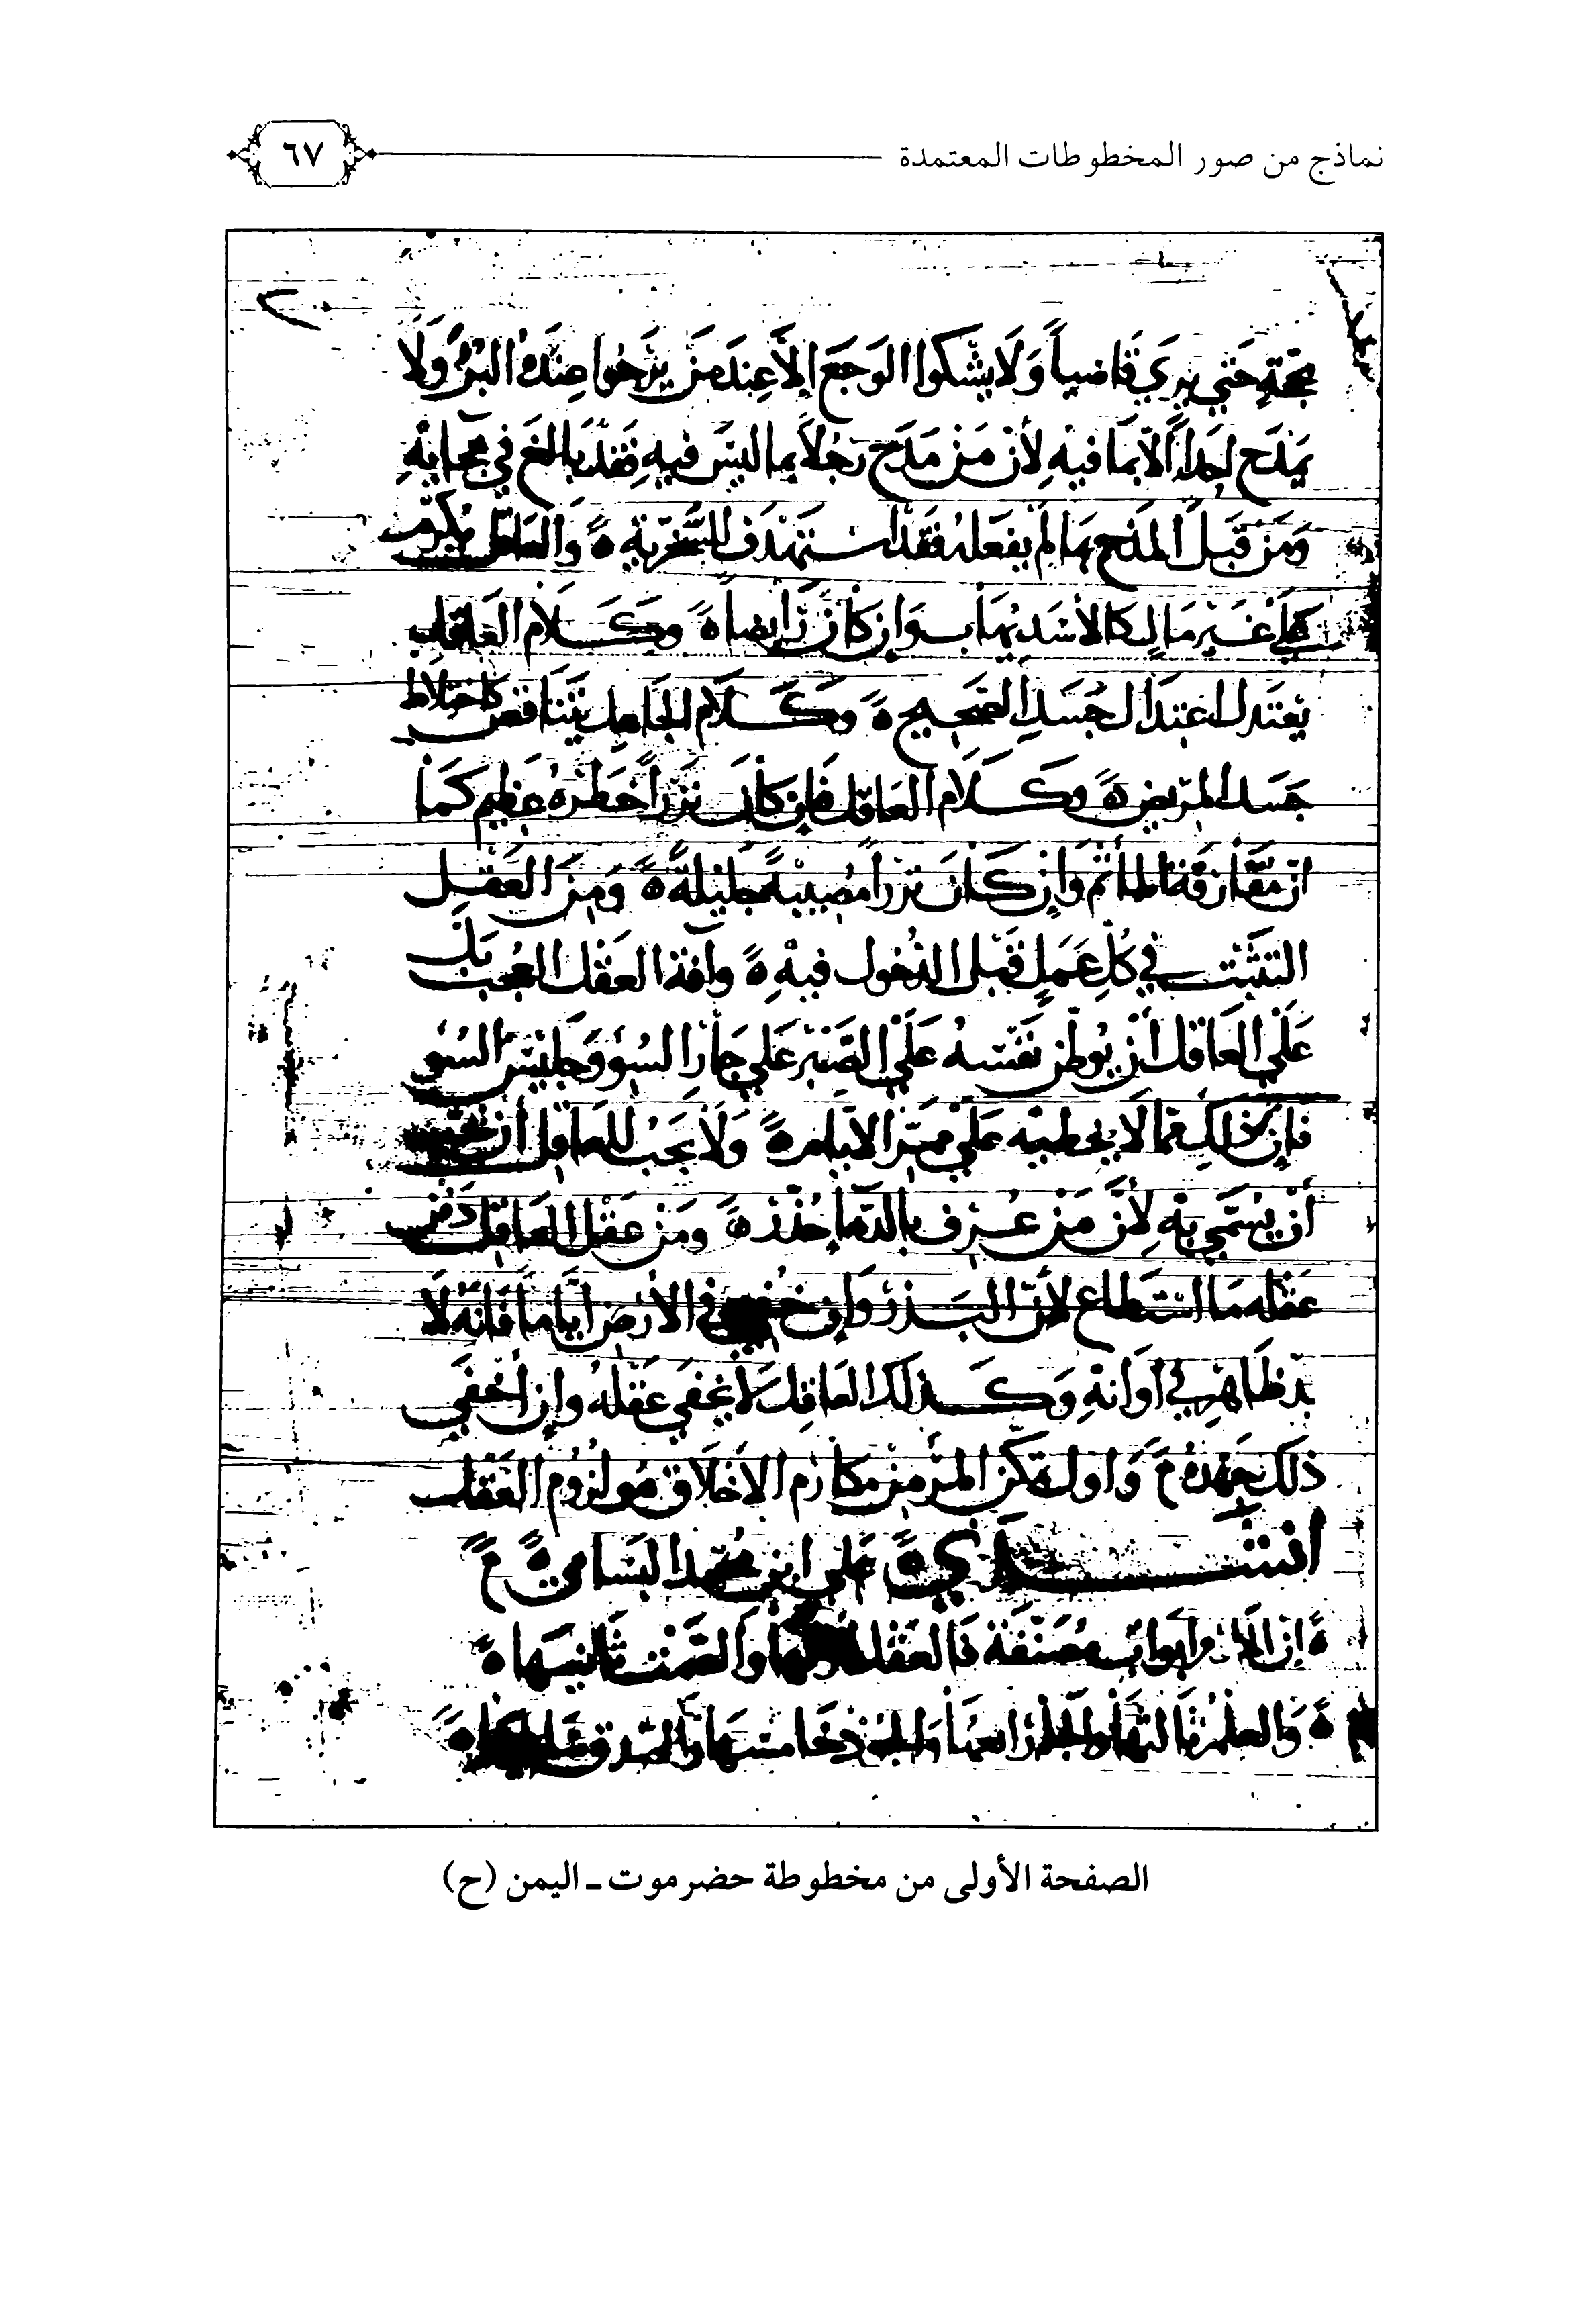 نماذج من صور المخطوطات المعتمدة
٦٧
بحجة حتي يري قاضياً ولا يشكوا الوجع إلا عند من يرجوا عنده البرؤ ولا
يمدح احداً الا بما فيه لأن من مدح رجلاً بما ليس فيه فقد بالغ في هجايه
ومن قبل المدح بما لم يفعله فقد استهدف للسخرية ه والعاقل يكرم
علي غير مال كالاسد يهاب وان كان رابضاً ه وكلام العاقل
يعتدل اعتدال جسد الصحيح ه وكلام الجاهل يتناقض كاختلاط
جسد المريض ه وكلام العاقل فإن كان نزراً خطره عظيم كما
ان مقارفة المأثم وإن كان نزراً مصيبة جليلة ه ومن العقل
التثبت في كل عمل قبل الدخول فيه ه وآفة العقل العجب بل
علي العاقل أن يوطن نفسه علي الصبر علي جار السوء وجليس السوء
فإن ذلك مما لا يخطيه علي ممر الايام ه ولا يجب للعاقل أن
أن يسمي به لأن من عرف بالدها حذر ه ومن عقل العاقل دفن
عقله ما استطاع لأن البذر وإن خفي في الارض اياماً فانه لا
بد ظاهر في أوانه وكذلك العاقل لا يخفي عقله وإن أخفي
ذلك جهده واول تمكن المرء من مكارم الاخلاق هو لزوم العقل
انشدني ه علي ابن محمد البسامي ه
ه إن المكارم ابواب مصنفة فالعقل اولها والصمت ثانيها ه
ه والعلم ثالثها والحلم رابعها والجود خامسها والصدق ه
الصفحة الأولى من مخطوطة حضرموت ـ اليمن (ح)